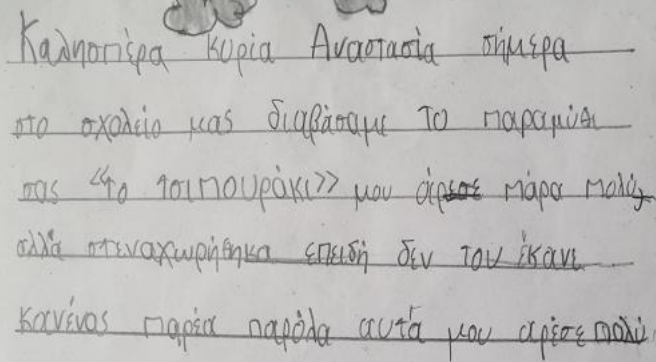 Καλησπέρα κυρία Αναστασία σήμερα
στο σχολείο μας διαβάσαμε το παραμύθι
σας «το τσιπουράκι» μου άρεσε πάρα πολύ
αλλά στεναχωρήθηκα επειδή δεν του έκανε
κανένος παρέα παρόλα αυτά μου αρέσε πολύ